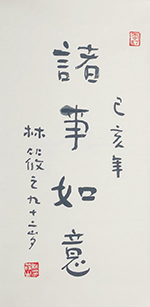 己亥年
諸事如意
林筱之九十二岁